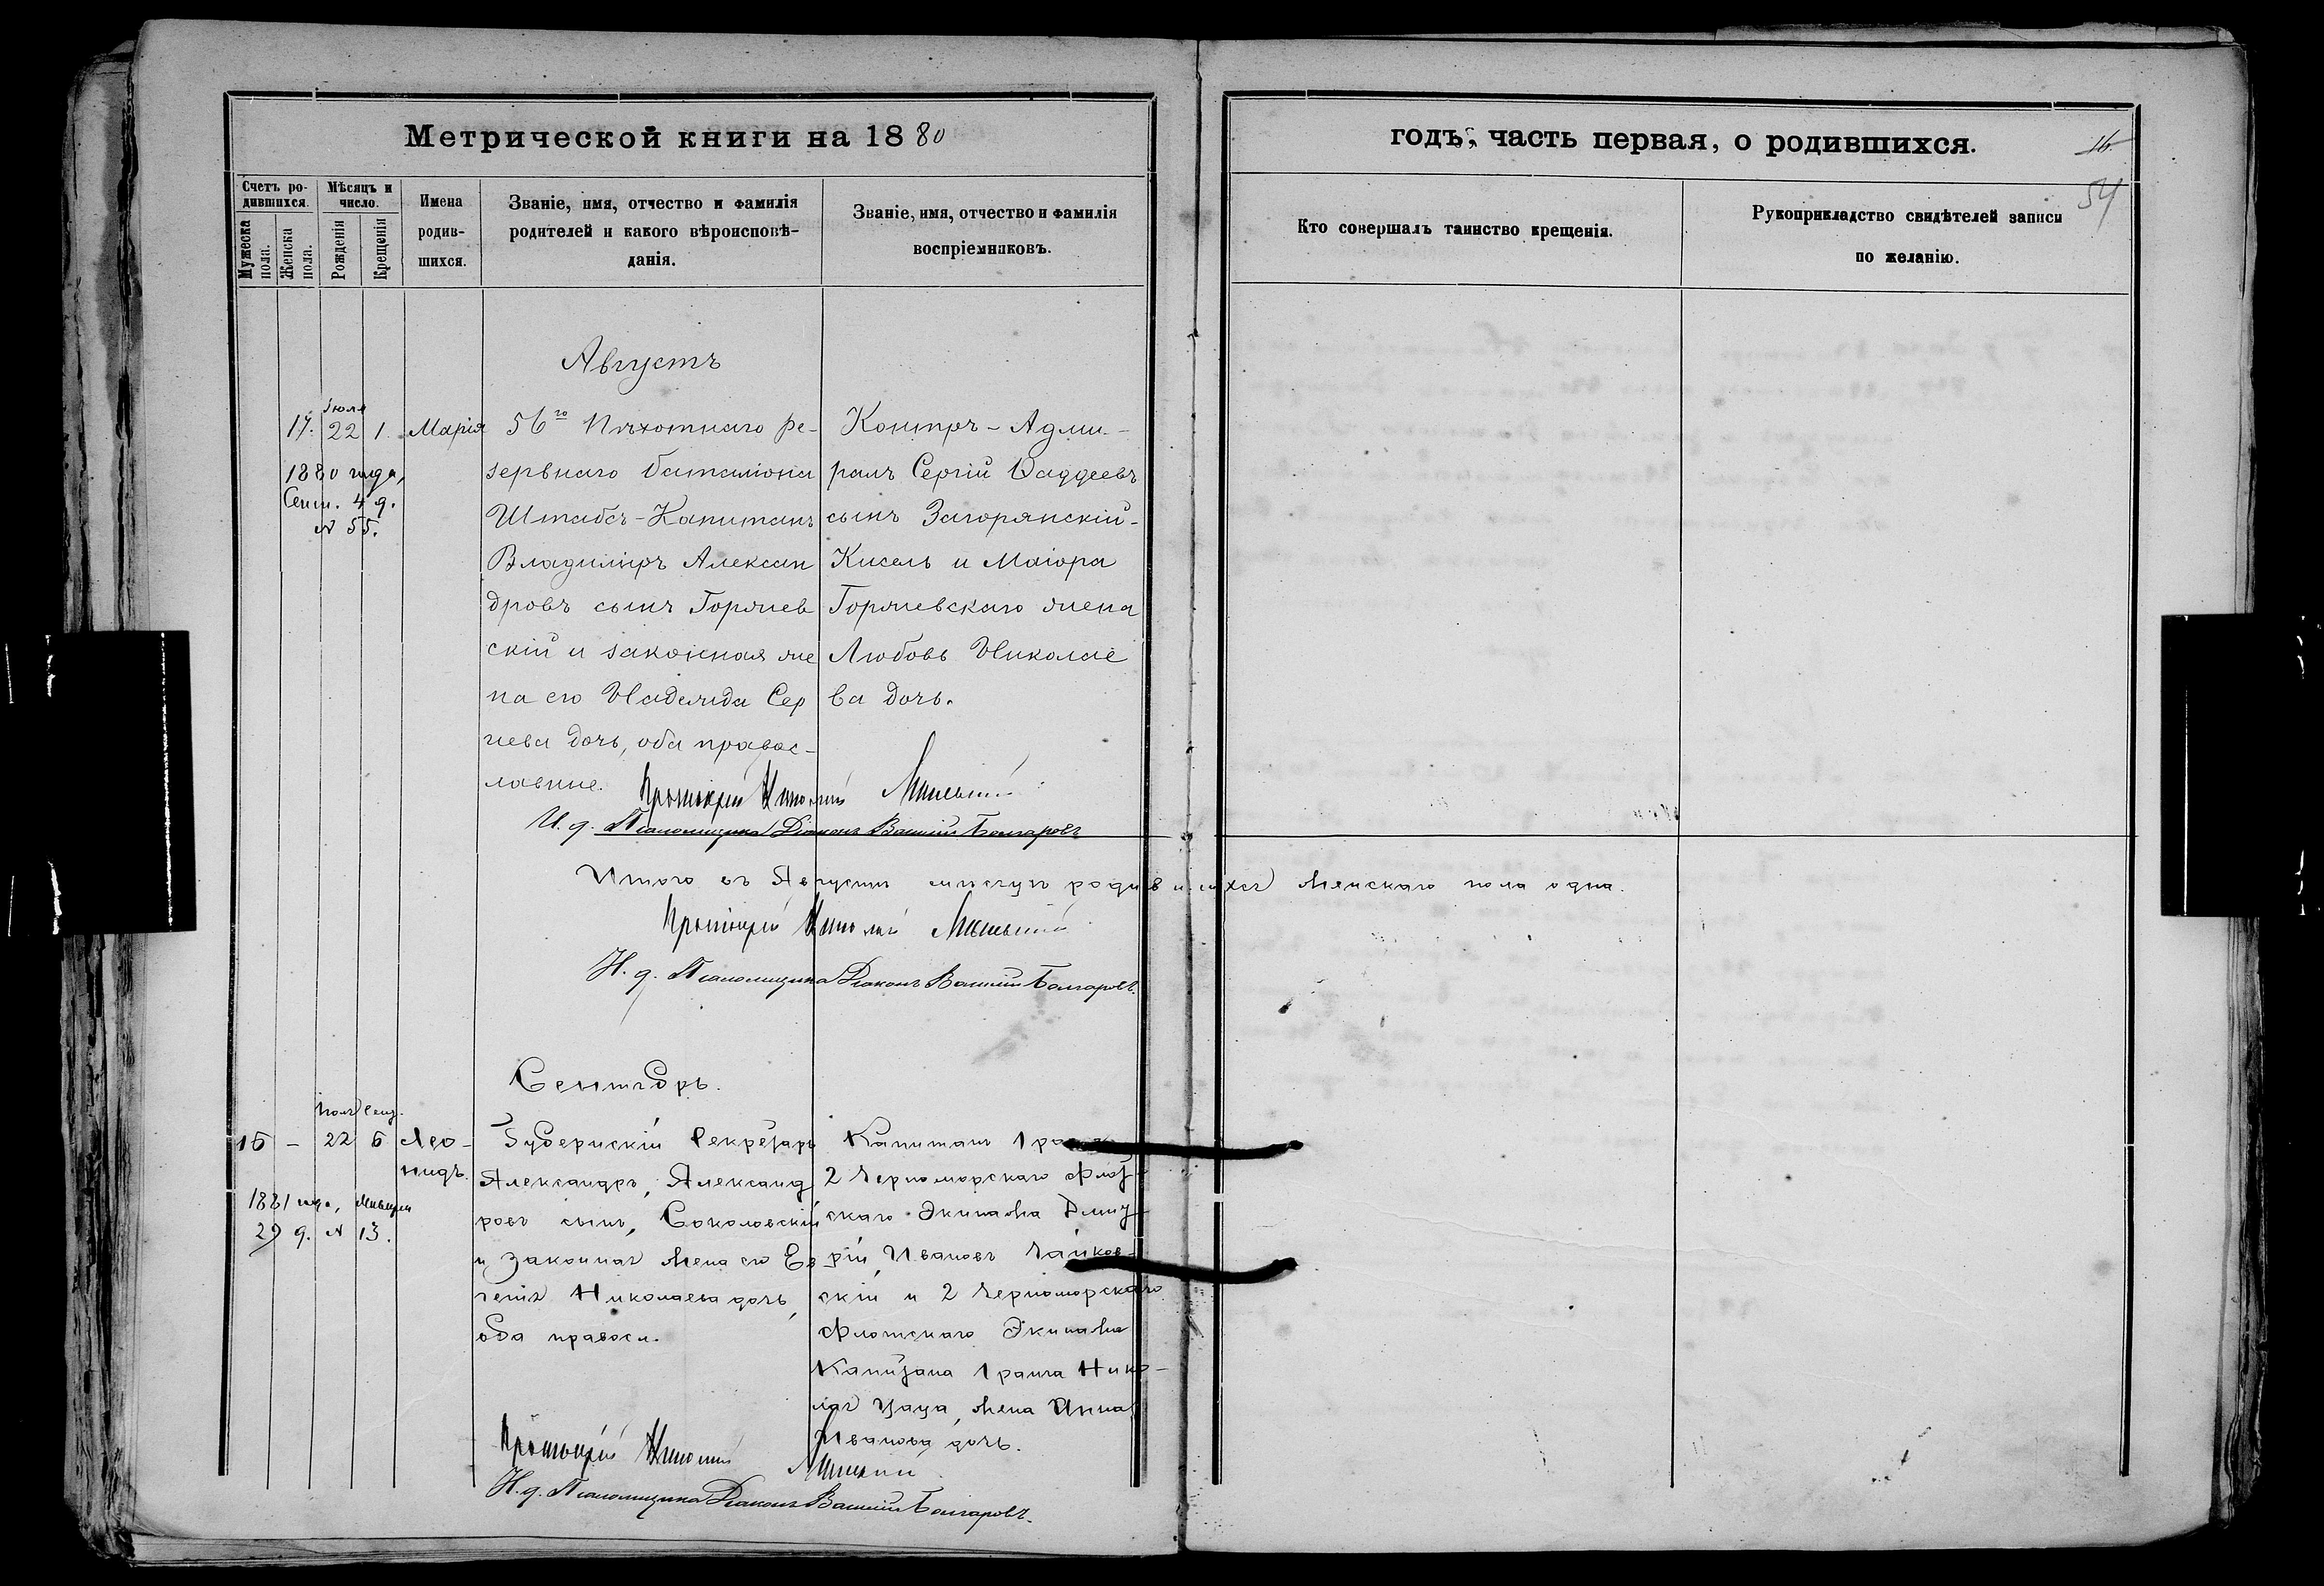 Метрической книги на 1880
годъ, часть первая, о родившихся.
16
54
Счетъ родившихся.
Мужеска пола.
Женска пола.
Мѣсяцъ и число.
Рожденія
Крещенія
Имена родившихся.
Званіе, имя, отчество и фамилія
родителей и какого вѣроисповѣ-
данія.
Званіе, имя, отчество и фамилія
воспріемниковъ.
Кто совершалъ таинство крещенія.
Рукоприкладство свидѣтелей записи
по желанію.
Августъ
Іюля
17. 22 1. Марія
1880 года,
Сент. 4 д.
№ 55.
56го Пѣхотнаго ре-
зервнаго баталіона
Штабсъ-Капитанъ
Владиміръ Алексан
дровъ сынъ Горячев
скій и законная же
на его Надежда Сер
гіева дочь, оба правос-
лавные.
Контръ-Адми-
ралъ Сергій Ѳаддеевъ
сынъ Загорянскій-
Кисель и Маіора
Горячевскаго жена
Любовь Николае
ва дочь.
Протоіерей Николай
И. д. Псаломщика Діаконъ Василій Болгаровъ
Итого въ Августѣ мѣсяцѣ родившихся женскаго пола одна.
Протоіерей Николай
И. д. Псаломщика Діаконъ Василій Болгаровъ.
Сентябрь.
Іюля Сент.
15 - 22 6 Лео-
нидъ.
1881 года,
29 д. № 13.
Губернскій Секретарь
Александръ, Александ
ровъ сынъ, Соколовскій
и законная жена его Ев
генія Николаева дочь,
оба правосл.
Капитанъ 1 ранга
2 Черноморскаго Флот-
скаго Экипажа Дмит
рій, Ивановъ Чайков-
скій и 2 Черноморскаго
Флотскаго Экипажа
Капитана 1 ранга Нико-
лая жена Анна
Иванова дочь.
Протоіерей Николай
И. д. Псаломщика Діаконъ Василій Болгаровъ.